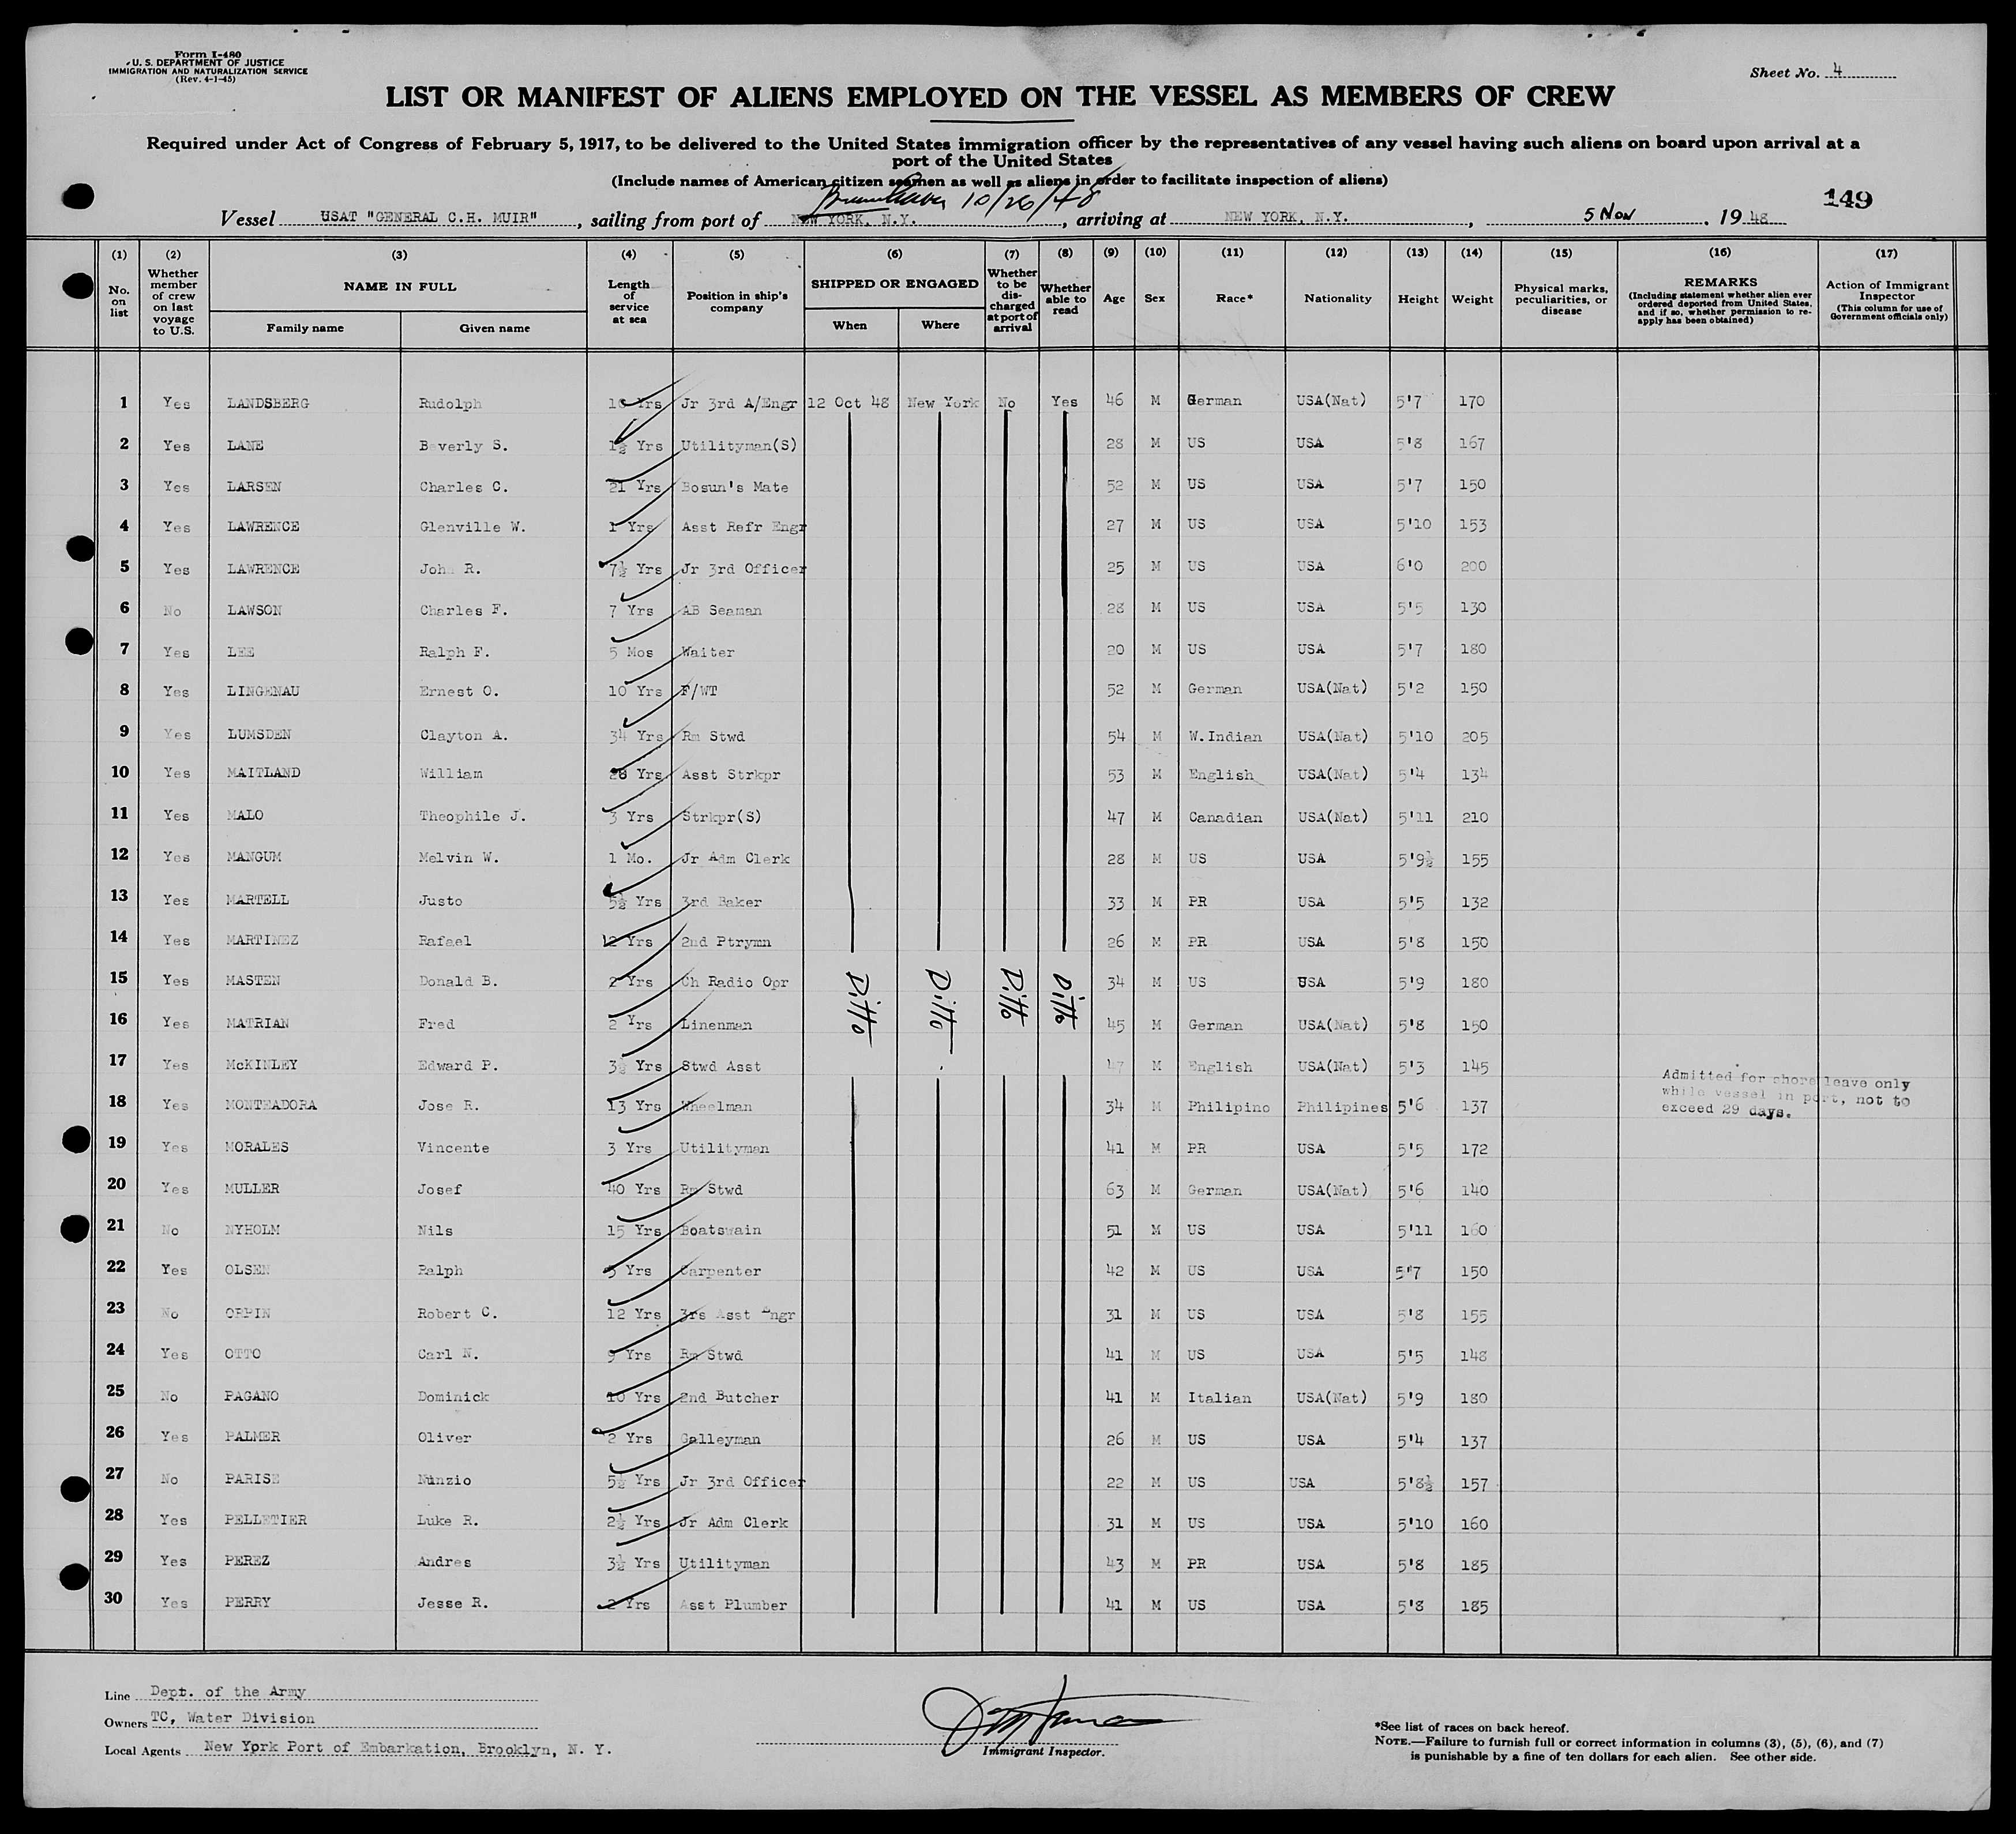 Form I-480
U. S. DEPARTMENT OF JUSTICE
IMMIGRATION AND NATURALIZATION SERVICE
(Rev. 4-1-45)
Sheet No. 4
LIST OR MANIFEST OF ALIENS EMPLOYED ON THE VESSEL AS MEMBERS OF CREW
Required under Act of Congress of February 5, 1917, to be delivered to the United States immigration officer by the representatives of any vessel having such aliens on board upon arrival at a
port of the United States
(Include names of American citizen seamen as well as aliens in order to facilitate inspection of aliens)
149
10/26/48
Vessel USAT "GENERAL C.H. MUIR", sailing from port of NEW YORK, N.Y., arriving at NEW YORK, N.Y., 5 Nov, 1948
(1) (2) (3) (4) (5) (6) (7) (8) (9) (10) (11) (12) (13) (14) (15) (16) (17)
No. on list
Whether member of crew on last voyage to U.S.
NAME IN FULL
Family name Given name
Length of service at sea
Position in ship's company
SHIPPED OR ENGAGED
When Where
Whether to be discharged at port of arrival
Whether able to read
Age Sex Race* Nationality Height Weight
Physical marks, peculiarities, or disease
REMARKS
(Including statement whether alien ever ordered deported from United States, and if so, whether permission to re-apply has been obtained)
Action of Immigrant Inspector
(This column for use of Government officials only)
1 Yes LANDSBERG Rudolph Yrs Jr 3rd A/Engr 12 Oct 48 New York No Yes 46 M German USA(Nat) 5'7 170
2 Yes LANE Beverly S. 1½ Yrs Utilityman(S) 28 M US USA 5'8 167
3 Yes LARSEN Charles C. 21 Yrs Bosun's Mate 52 M US USA 5'7 150
4 Yes LAWRENCE Glenville W. 1 Yrs Asst Refr Engr 27 M US USA 5'10 153
5 Yes LAWRENCE John R. 7½ Yrs Jr 3rd Officer 25 M US USA 6'0 200
6 No LAWSON Charles F. 7 Yrs AB Seaman 28 M US USA 5'5 130
7 Yes LEE Ralph F. 5 Mos Waiter 20 M US USA 5'7 180
8 Yes LINGENAU Ernest O. 10 Yrs F/WT 52 M German USA(Nat) 5'2 150
9 Yes LUMSDEN Clayton A. 34 Yrs Rm Stwd 54 M W.Indian USA(Nat) 5'10 205
10 Yes MAITLAND William 28 Yrs Asst Strkpr 53 M English USA(Nat) 5'4 134
11 Yes MALO Theophile J. 3 Yrs Strkpr(S) 47 M Canadian USA(Nat) 5'11 210
12 Yes MANGUM Melvin W. 1 Mo. Jr Adm Clerk 28 M US USA 5'9½ 155
13 Yes MARTELL Justo 5½ Yrs 3rd Baker 33 M PR USA 5'5 132
14 Yes MARTINEZ Rafael 12 Yrs 2nd Ptrymn 26 M PR USA 5'8 150
15 Yes MASTEN Donald B. 2 Yrs Ch Radio Opr Ditto Ditto Ditto Ditto 34 M US USA 5'9 180
16 Yes MATRIAN Fred 2 Yrs Linenman 45 M German USA(Nat) 5'8 150
17 Yes McKINLEY Edward P. 3½ Yrs Stwd Asst 47 M English USA(Nat) 5'3 145
18 Yes MONTEADORA Jose R. 13 Yrs Wheelman 34 M Philipino Philipines 5'6 137
Admitted for shore leave only
while vessel in port, not to
exceed 29 days.
19 Yes MORALES Vincente 3 Yrs Utilityman 41 M PR USA 5'5 172
20 Yes MULLER Josef 40 Yrs Rm Stwd 63 M German USA(Nat) 5'6 140
21 No NYHOLM Nils 15 Yrs Boatswain 51 M US USA 5'11 160
22 Yes OLSEN Ralph Yrs Carpenter 42 M US USA 5'7 150
23 No ORPIN Robert C. 12 Yrs 3rs Asst Engr 31 M US USA 5'8 155
24 Yes OTTO Carl N. 9 Yrs Rm Stwd 41 M US USA 5'5 148
25 No PAGANO Dominick 10 Yrs 2nd Butcher 41 M Italian USA(Nat) 5'9 180
26 Yes PALMER Oliver 2 Yrs Galleyman 26 M US USA 5'4 137
27 No PARISE Nunzio 5½ Yrs Jr 3rd Officer 22 M US USA 5'8½ 157
28 Yes PELLETIER Luke R. 2½ Yrs Jr Adm Clerk 31 M US USA 5'10 160
29 Yes PEREZ Andres 3½ Yrs Utilityman 43 M PR USA 5'8 185
30 Yes PERRY Jesse R. 2 Yrs Asst Plumber 41 M US USA 5'8 185
Line Dept. of the Army
Owners TC, Water Division
Local Agents New York Port of Embarkation, Brooklyn, N. Y.
Immigrant Inspector.
*See list of races on back hereof.
NOTE.—Failure to furnish full or correct information in columns (3), (5), (6), and (7)
is punishable by a fine of ten dollars for each alien. See other side.